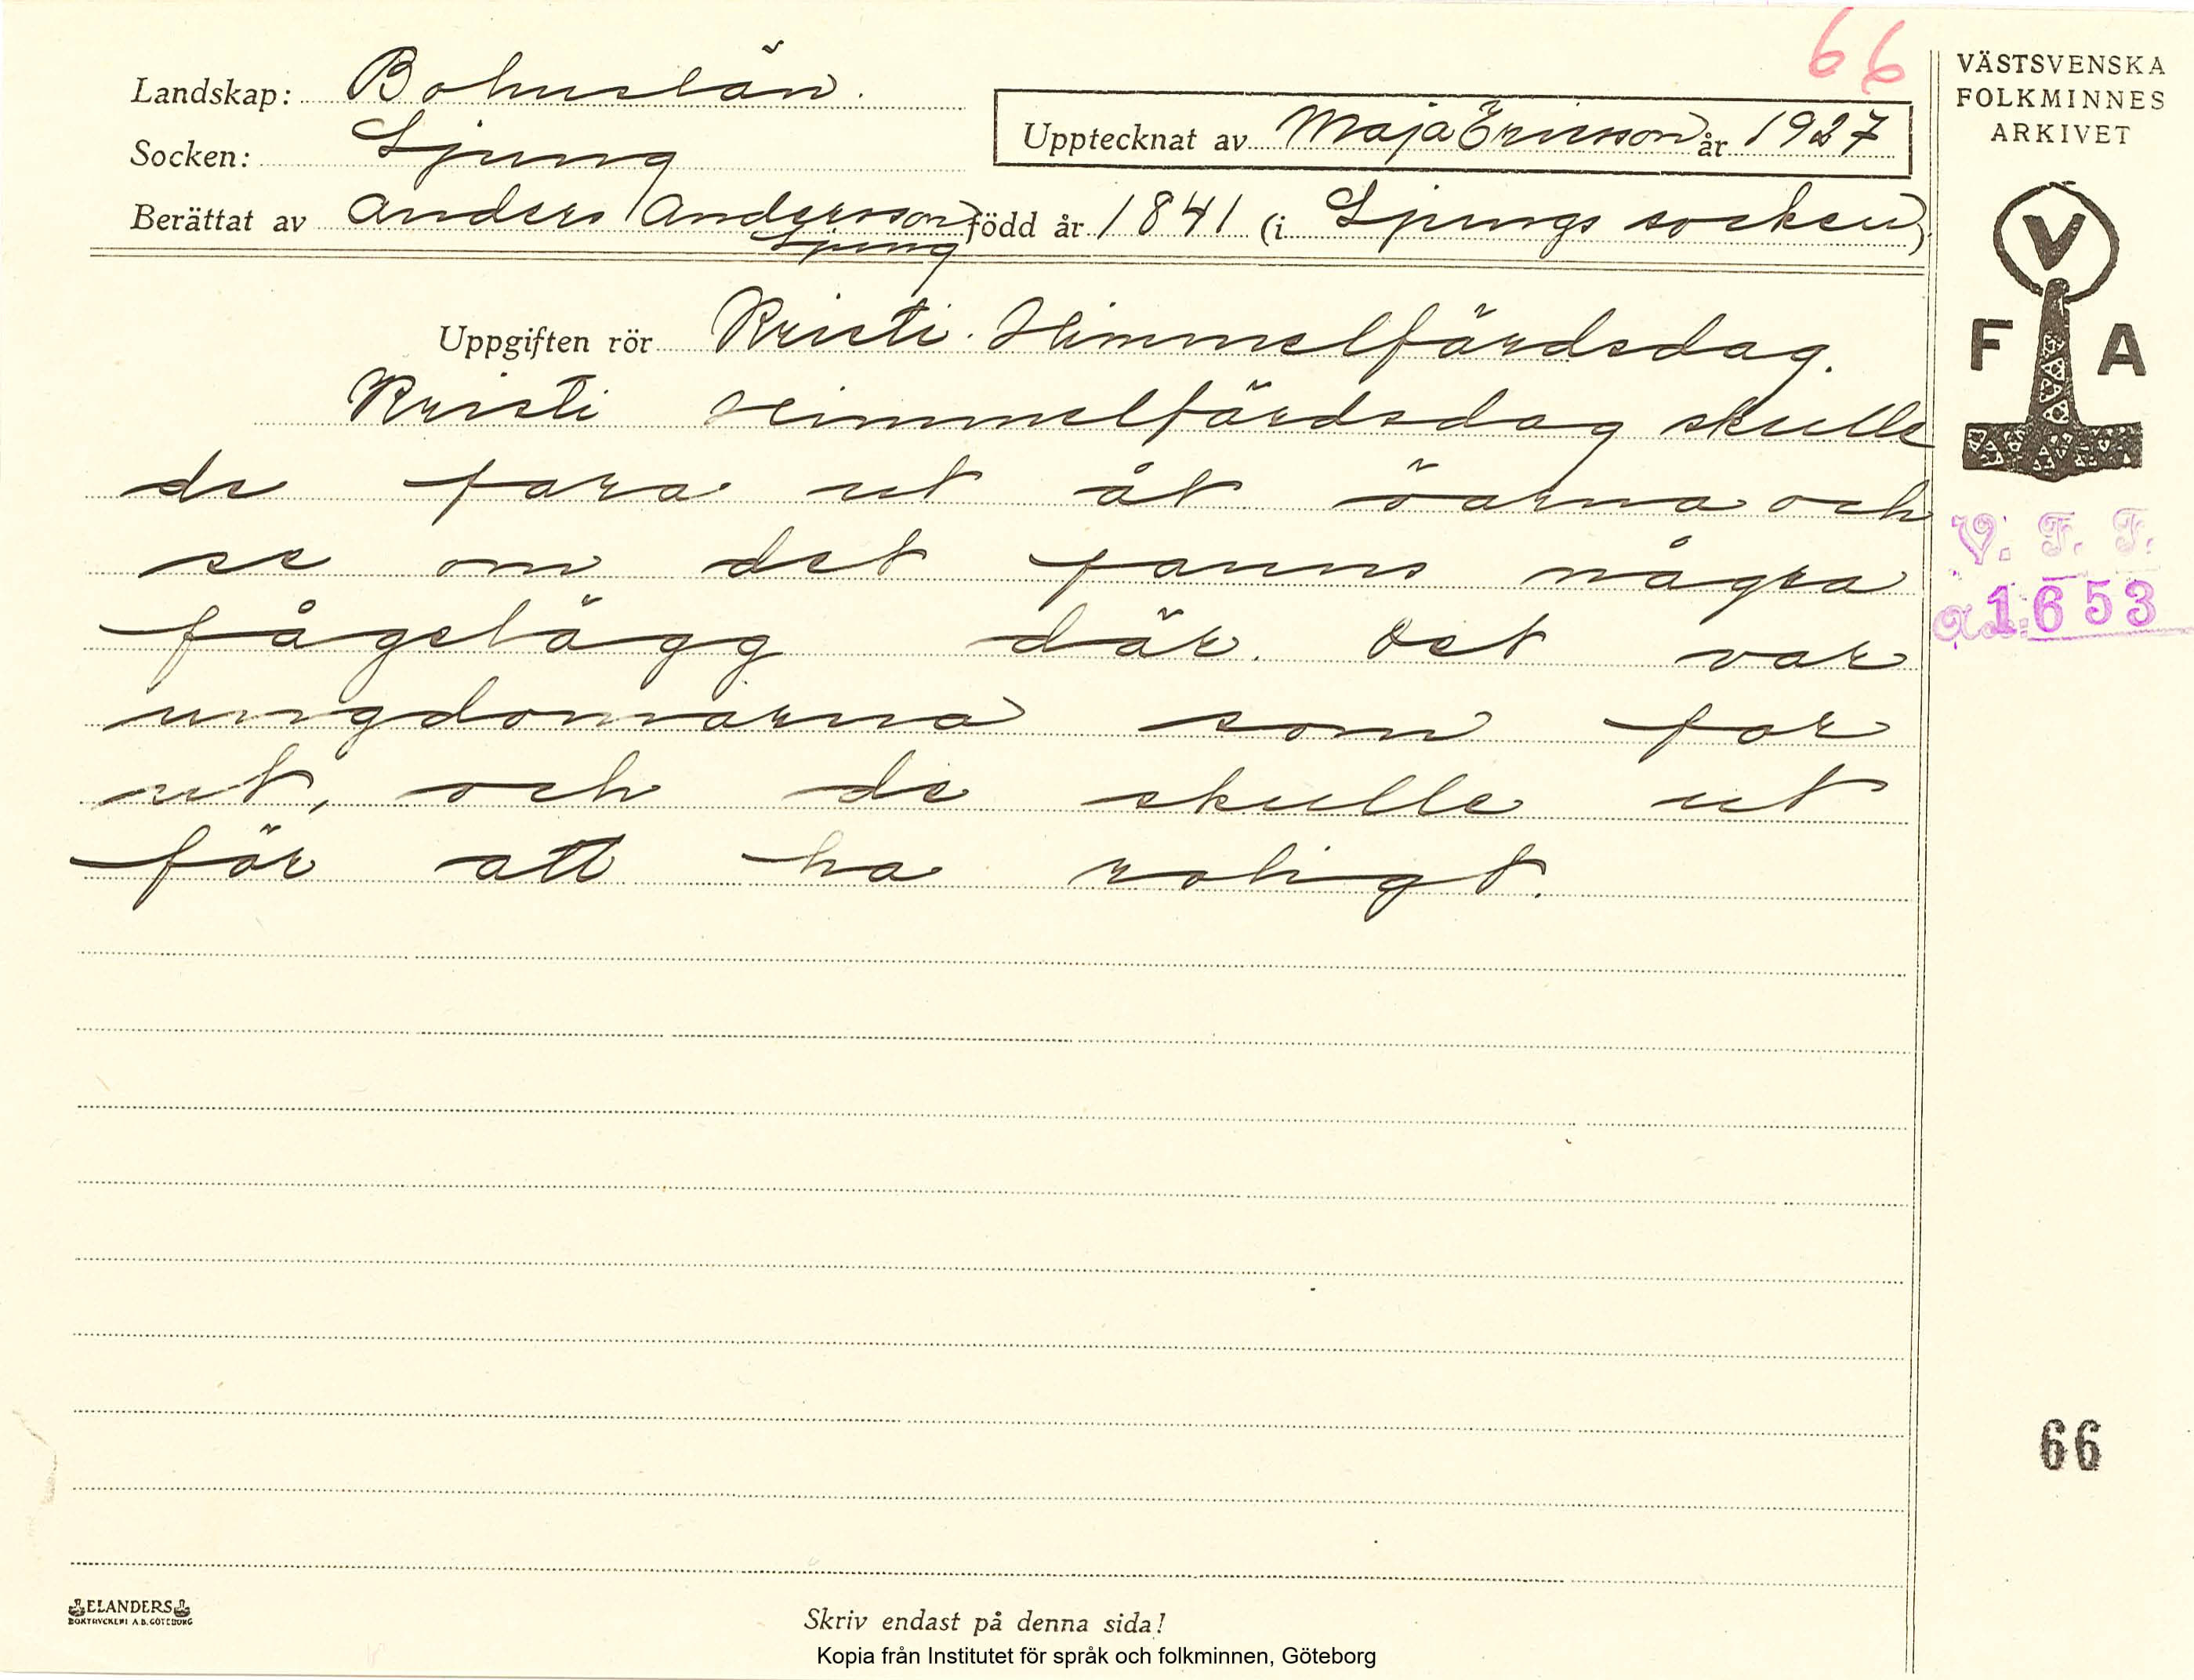 66
Landskap: Bohuslän.
VÄSTSVENSKA
FOLKMINNES
ARKIVET
Upptecknat av Maja Ericsson år 1927
Socken: Ljung
Berättat av Anders Andersson född år 1841 (i Ljungs socken)
Ljung
V
F A
Uppgiften rör Kristi Himmelfärdsdag.
Kristi Himmelfärdsdag skulle
de fara ut åt öarna och
se om det fanns några
fågelägg där. Det var
ungdomarna som for
ut, och de skulle ut
för att ha roligt.
V. F. F.
1653
66
ELANDERS
BOKTRYCKERI A.B. GÖTEBORG
Skriv endast på denna sida!
Kopia från Institutet för språk och folkminnen, Göteborg